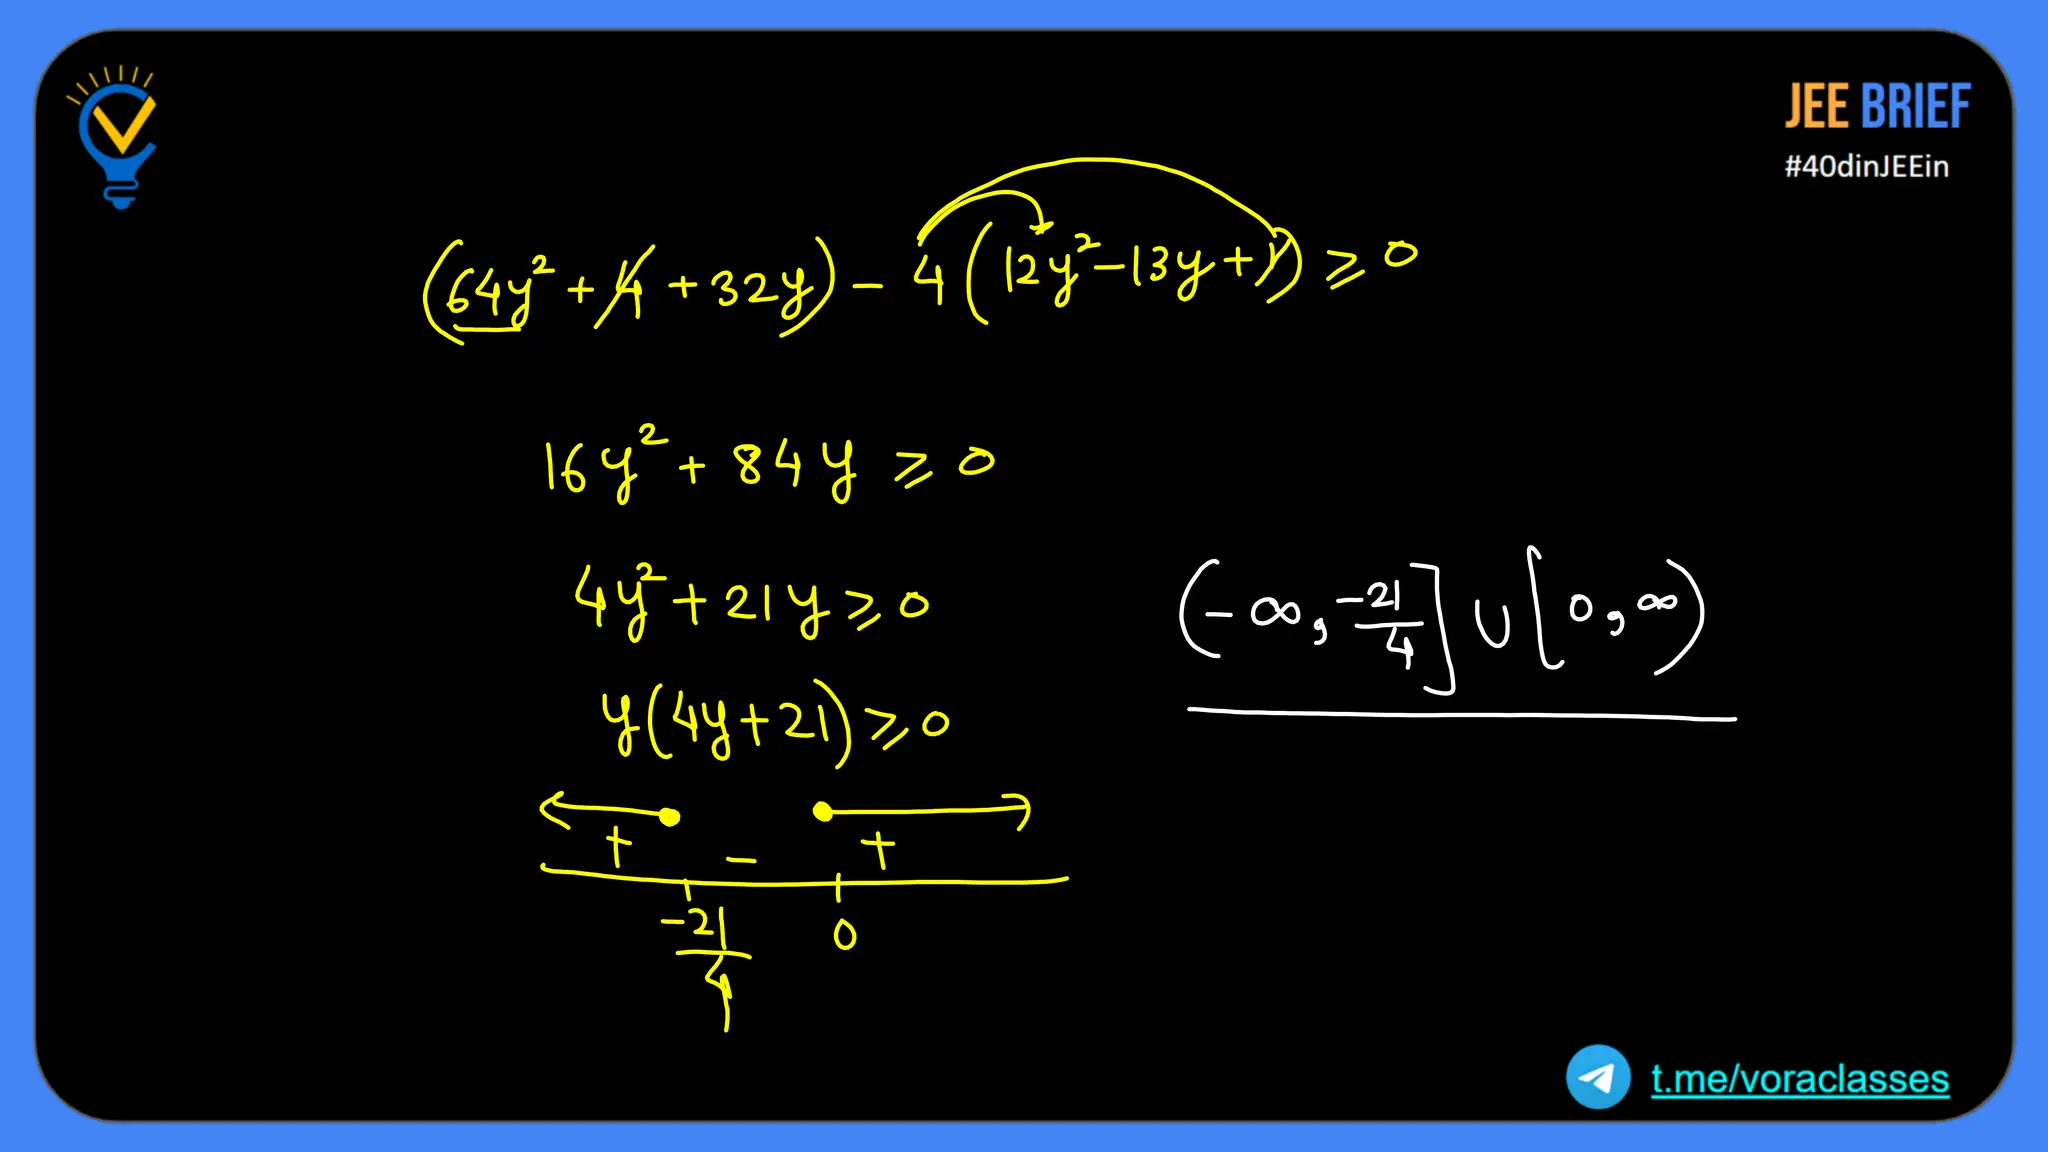 JEE BRIEF
#40dinJEEin
(64y² + 4 + 32y) - 4(12y² - 13y + 1) ≥ 0
16y² + 84y ≥ 0
4y² + 21y ≥ 0
(-∞, -21/4] ∪ [0, ∞)
y(4y + 21) ≥ 0
+ - +
-21/4 0
t.me/voraclasses